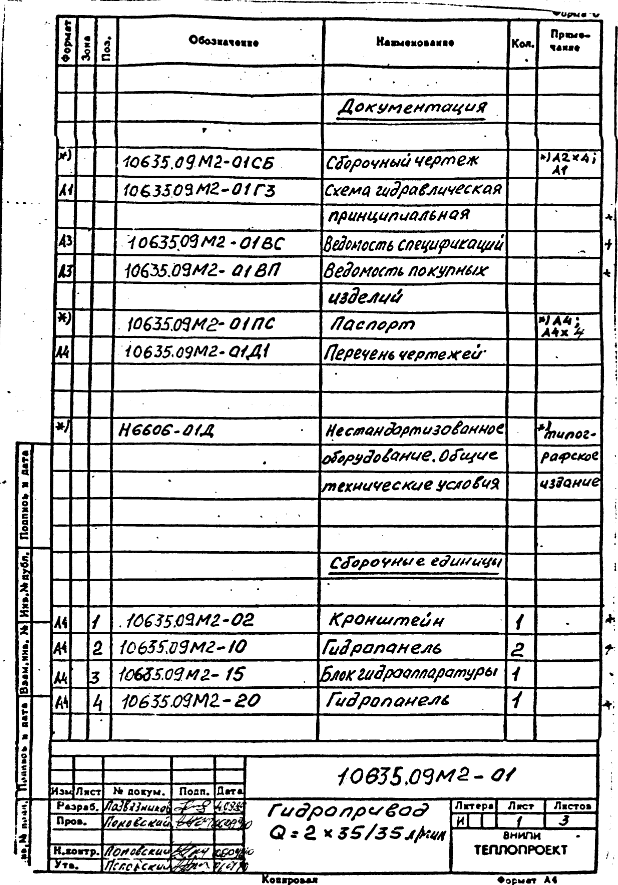 Формат Зона Поз. Обозначение Наименование Кол. Приме-
чание
Документация
*) 10635.09М2-01СБ Сборочный чертеж *) А2×4;
А1
А1 10635.09М2-01Г3 Схема гидравлическая
принципиальная
А3 10635.09М2-01ВС Ведомость спецификаций
А3 10635.09М2-01ВП Ведомость покупных
изделий
*) 10635.09М2-01ПС Паспорт *) А4;
А4×4
А4 10635.09М2-01Д1 Перечень чертежей
*) Н6606-01Д Нестандартизованное *) типог-
оборудование. Общие рафское
технические условия издание
Сборочные единицы
А4 1 10635.09М2-02 Кронштейн 1
А4 2 10635.09М2-10 Гидропанель 2
А4 3 10635.09М2-15 Блок гидроаппаратуры 1
А4 4 10635.09М2-20 Гидропанель 1
Подпись и дата
Инв.№ дубл.
Взам.инв. №
Подпись и дата
10635.09М2-01
Изм Лист № докум. Подп. Дата
Разраб.
Пров. Поповский
Н.контр. Поповский
Утв. Поповский
Гидропривод
Q=2×35/35 л/мин
Литера Лист Листов
И 1 3
ВНИПИ
ТЕПЛОПРОЕКТ
Копировал Формат А4